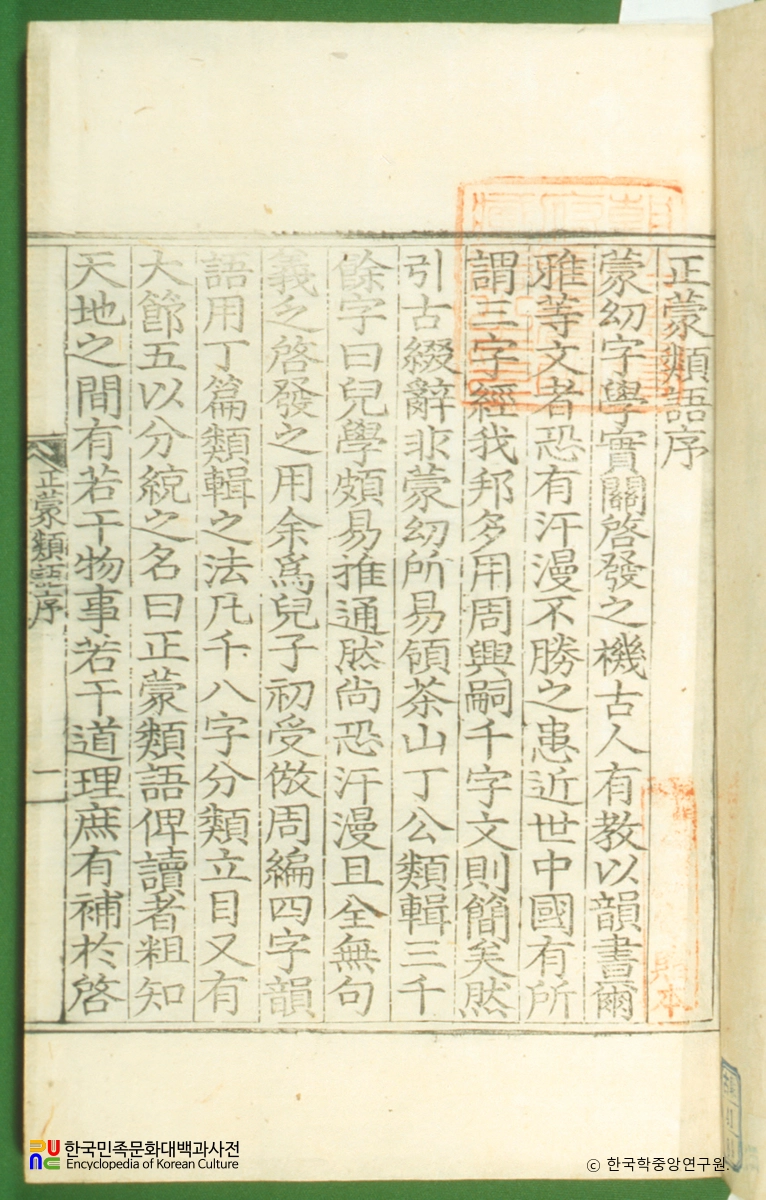 正蒙類語序
蒙幼字學實關啓發之機古人有教以韻書爾
雅等文者恐有汗漫不勝之患近世中國有所
謂三字經我邦多用周興嗣千字文則簡矣然
引古綴辭非蒙幼所易領茶山丁公類輯三千
餘字曰兒學頗易推通然尙恐汗漫且全無句
義之啓發之用余爲兒子初受倣周編四字韻
語用丁篇類輯之法凡千八字分類立目又有
大節五以分統之名曰正蒙類語俾讀者粗知
天地之間有若干物事若干道理庶有補於啓
正蒙類語序
二
한국민족문화대백과사전
Encyclopedia of Korean Culture
© 한국학중앙연구원.